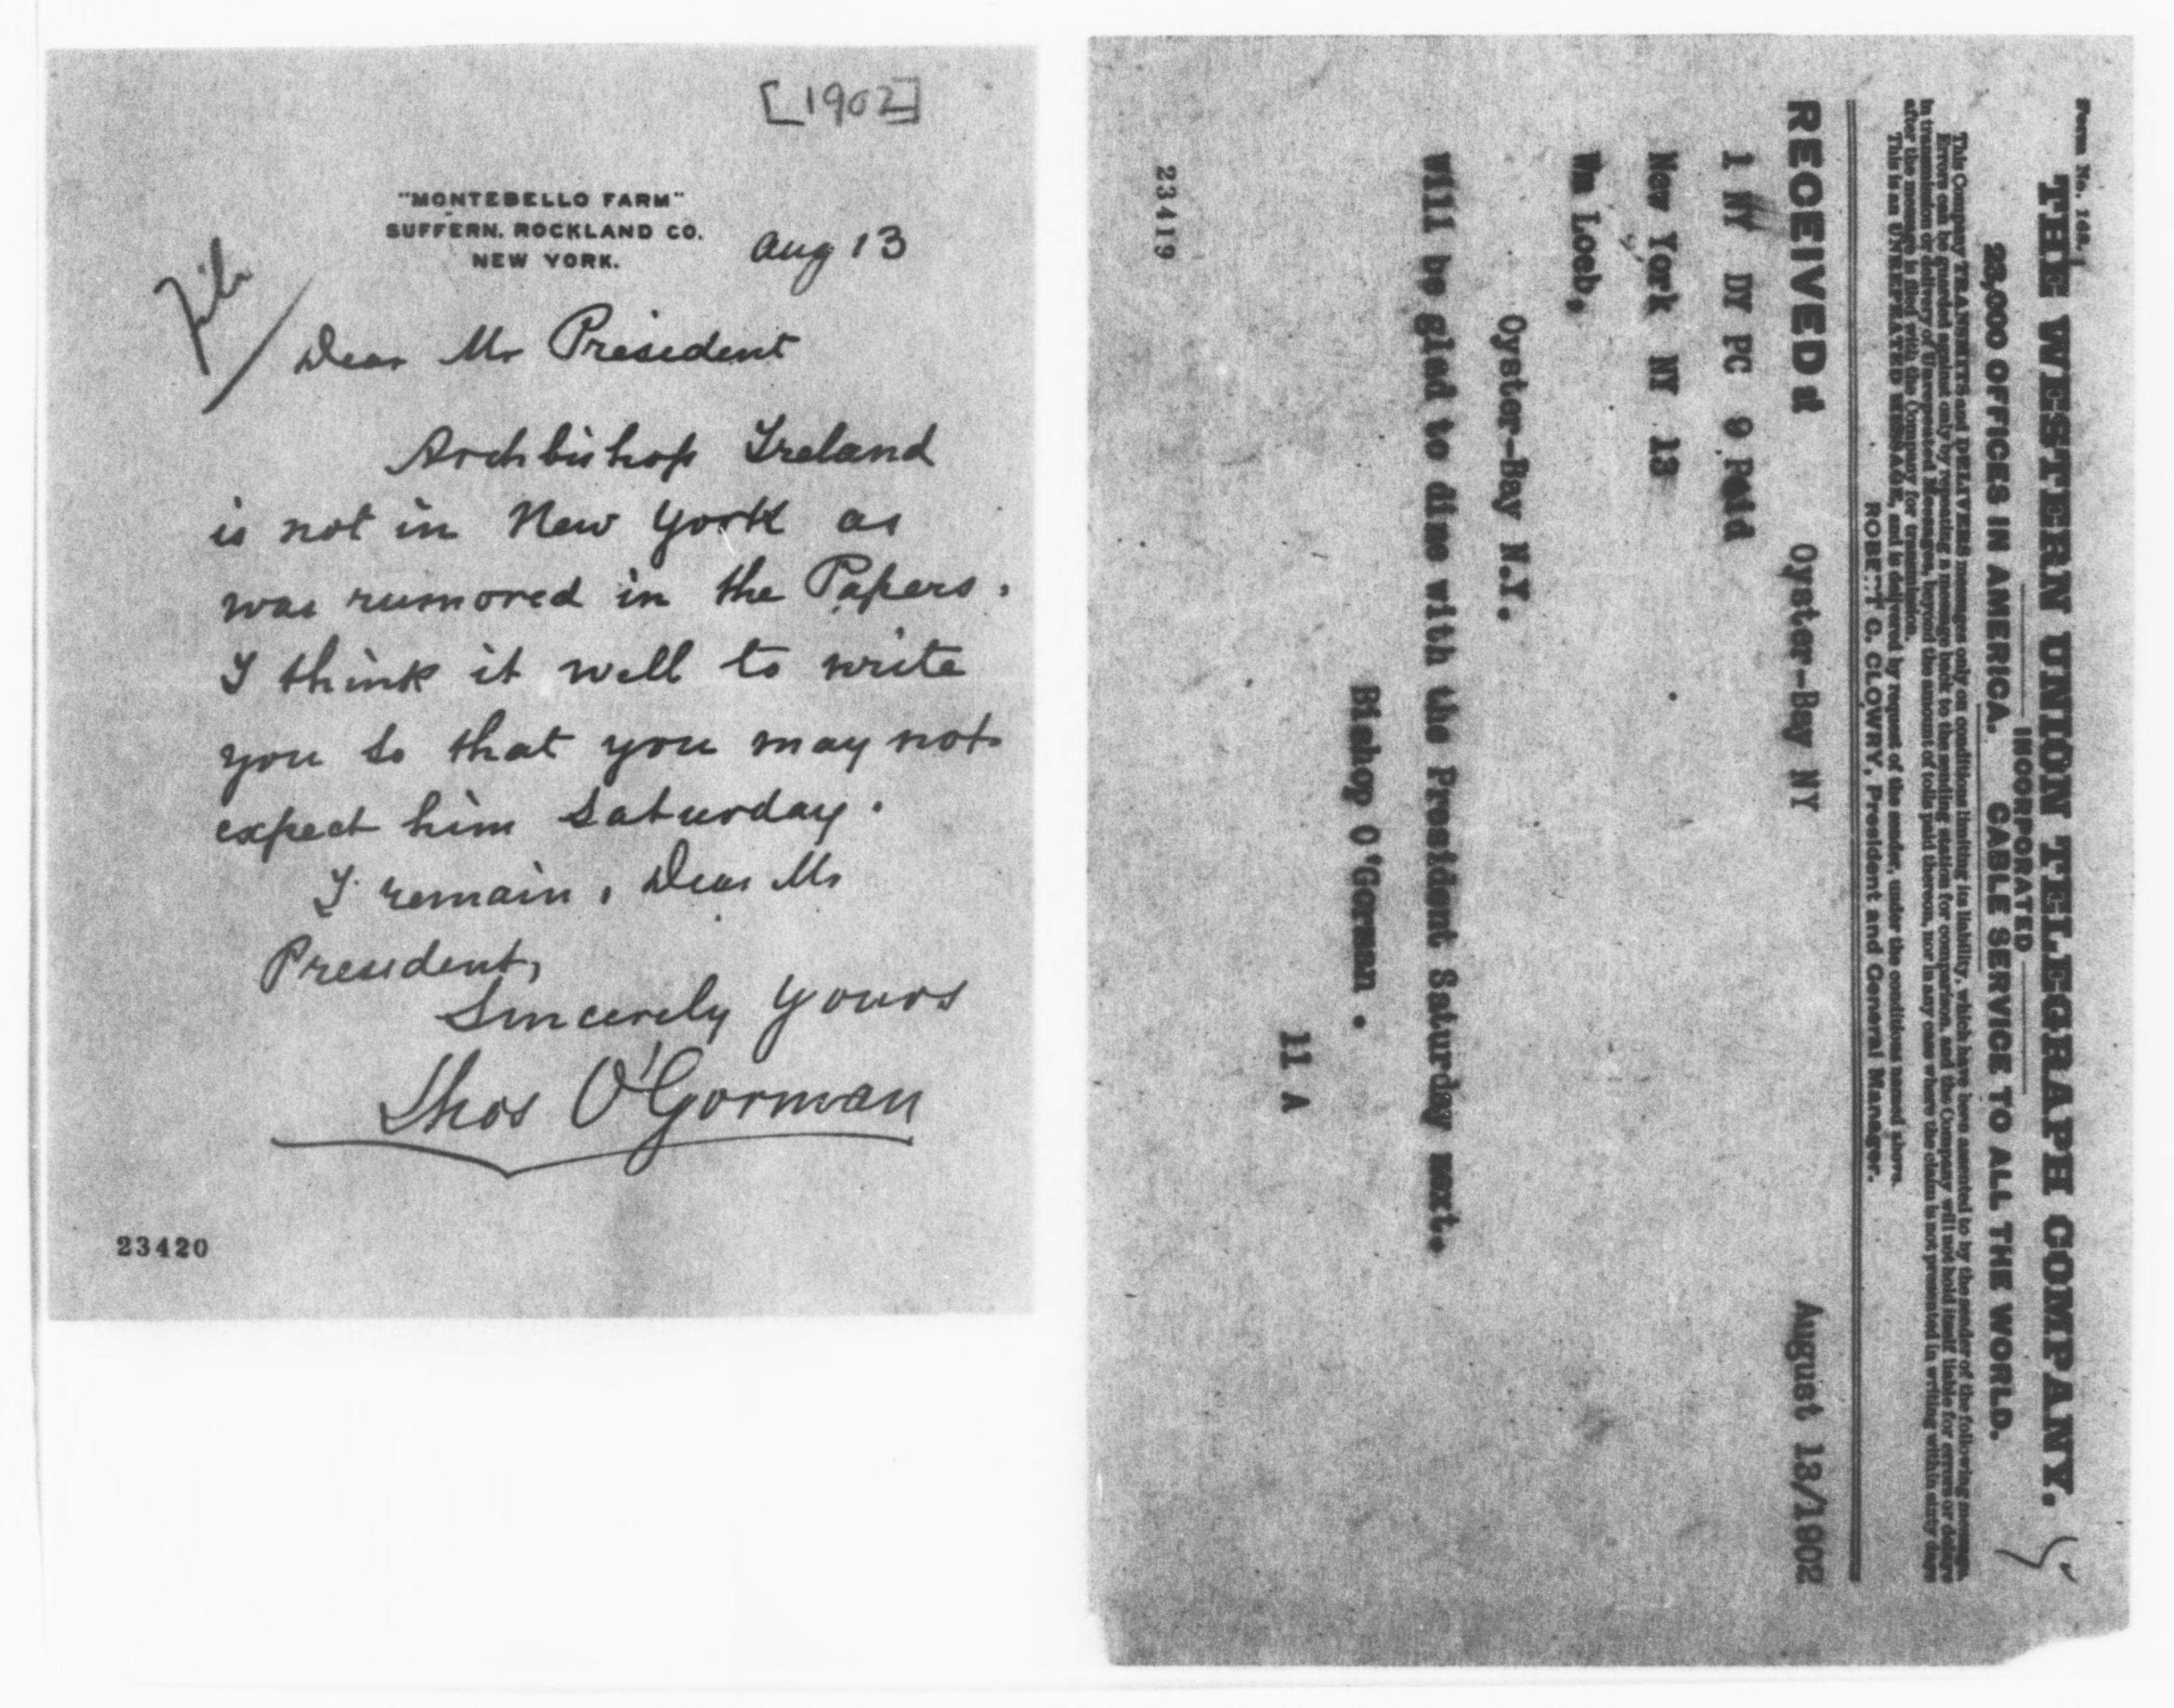 [1902]
"MONTEBELLO FARM"
SUFFERN, ROCKLAND CO.
NEW YORK.
Aug 13
File
Dear Mr President
Archbishop Ireland
is not in New York as
was rumored in the Papers.
I think it well to write
you so that you may not
expect him Saturday.
I remain, Dear Mr
President,
Sincerely Yours
Thos O'Gorman
23420
Form No. 168.
THE WESTERN UNION TELEGRAPH COMPANY.
INCORPORATED
23,000 OFFICES IN AMERICA. CABLE SERVICE TO ALL THE WORLD.
This Company TRANSMITS and DELIVERS messages only on conditions limiting its liability, which have been assented to by the sender of the following message.
Errors can be guarded against only by repeating a message back to the sending station for comparison, and the Company will not hold itself liable for errors or delays
in transmission or delivery of Unrepeated Messages, beyond the amount of tolls paid thereon, nor in any case where the claim is not presented in writing within sixty days
after the message is filed with the Company for transmission.
This is an UNREPEATED MESSAGE, and is delivered by request of the sender, under the conditions named above.
ROBERT C. CLOWRY, President and General Manager.
RECEIVED at Oyster-Bay NY August 13/1902
1 NY DY PC 9 Paid
New York NY 13
Wm Loeb,
Oyster-Bay N.Y.
Will be glad to dine with the President Saturday next.
Bishop O'Gorman.
11 A
23419